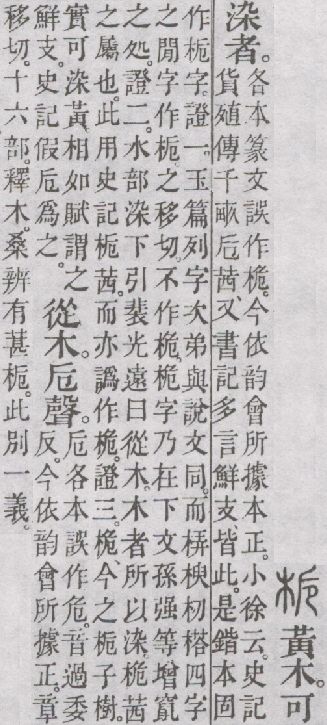 栀黃木。可
染者。
各本篆文誤作桅。今依韵會所據本正。小徐云。史記
貨殖傳千畝卮茜。又書記多言鮮支、皆此。是鍇本固
作栀字。證一。玉篇列字次弟與說文同。而栟椶朷榙四字
之閒字作栀。之移切。不作桅。桅字乃在下文孫强等增竄
之処。證二。水部染下引裴光遠曰從木。木者所以染。桅茜
之屬也。此用史記栀茜。而亦譌作桅。證三。桅、今之栀子樹。
實可染黃。相如賦謂之
鮮支。史記假卮爲之。
從木。卮聲。
卮各本誤作危。音過委
反。今依韵會所據正。章
移切。十六部。釋木。桑辨有葚栀。此別一義。